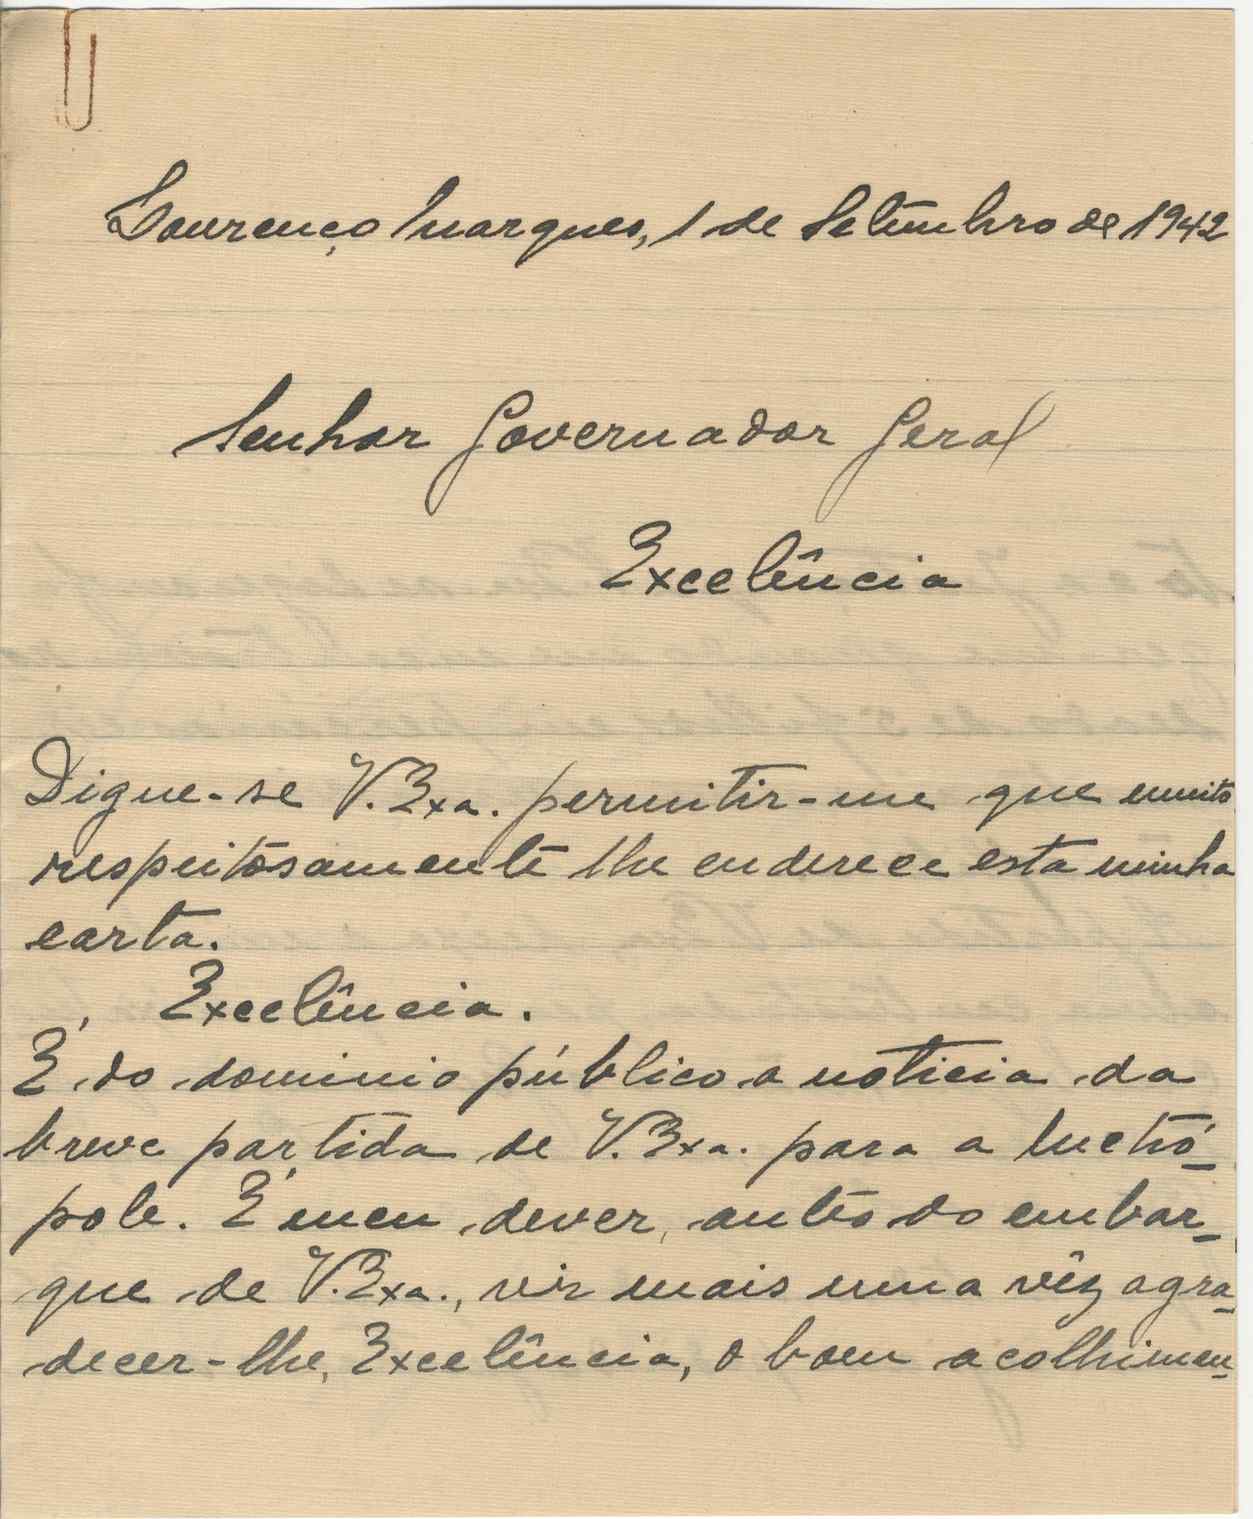 Lourenço Marques, 1 de Setembro de 1942
Senhor Governador Geral
Excelência
Digne-se V. Exa. permitir-me que muito
respeitosamente lhe enderece esta minha
carta.
Excelência.
É do dominio público a noticia da
breve partida de V. Exa. para a Metró-
pole. É meu dever, antes do embar-
que de V. Exa., vir mais uma vêz agra-
decer-lhe, Excelência, o bom acolhimen-